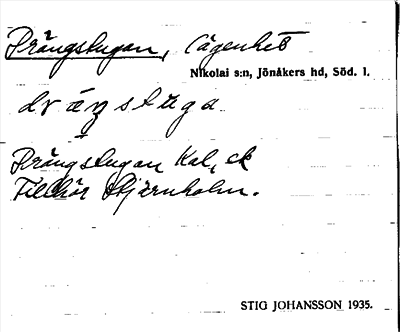 Drängstugan, lägenhet
Nikolai s:n, Jönåkers hd, Söd. l.
dräŋstuga
Drängstugan Kal, ek
Tillhör Stjärnholm.
STIG JOHANSSON 1935.